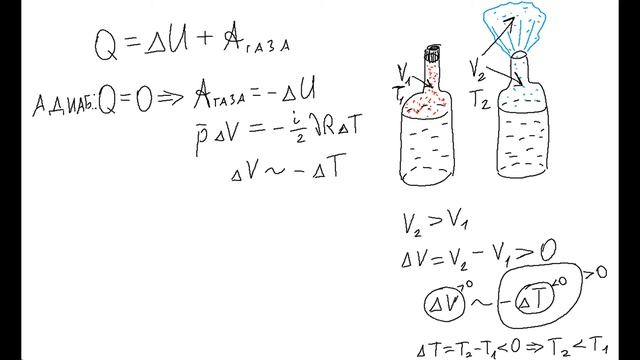 Q = ΔU + Aгаза
АДИАБ: Q = 0 ⇒ Aгаза = -ΔU
p̄ ΔV = - i/2 νRΔT
ΔV ~ - ΔT
V₁
T₁
V₂
T₂
V₂ > V₁
ΔV = V₂ - V₁ > 0
ΔV >0 ~ - ΔT <0 >0
ΔT = T₂ - T₁ < 0 ⇒ T₂ < T₁